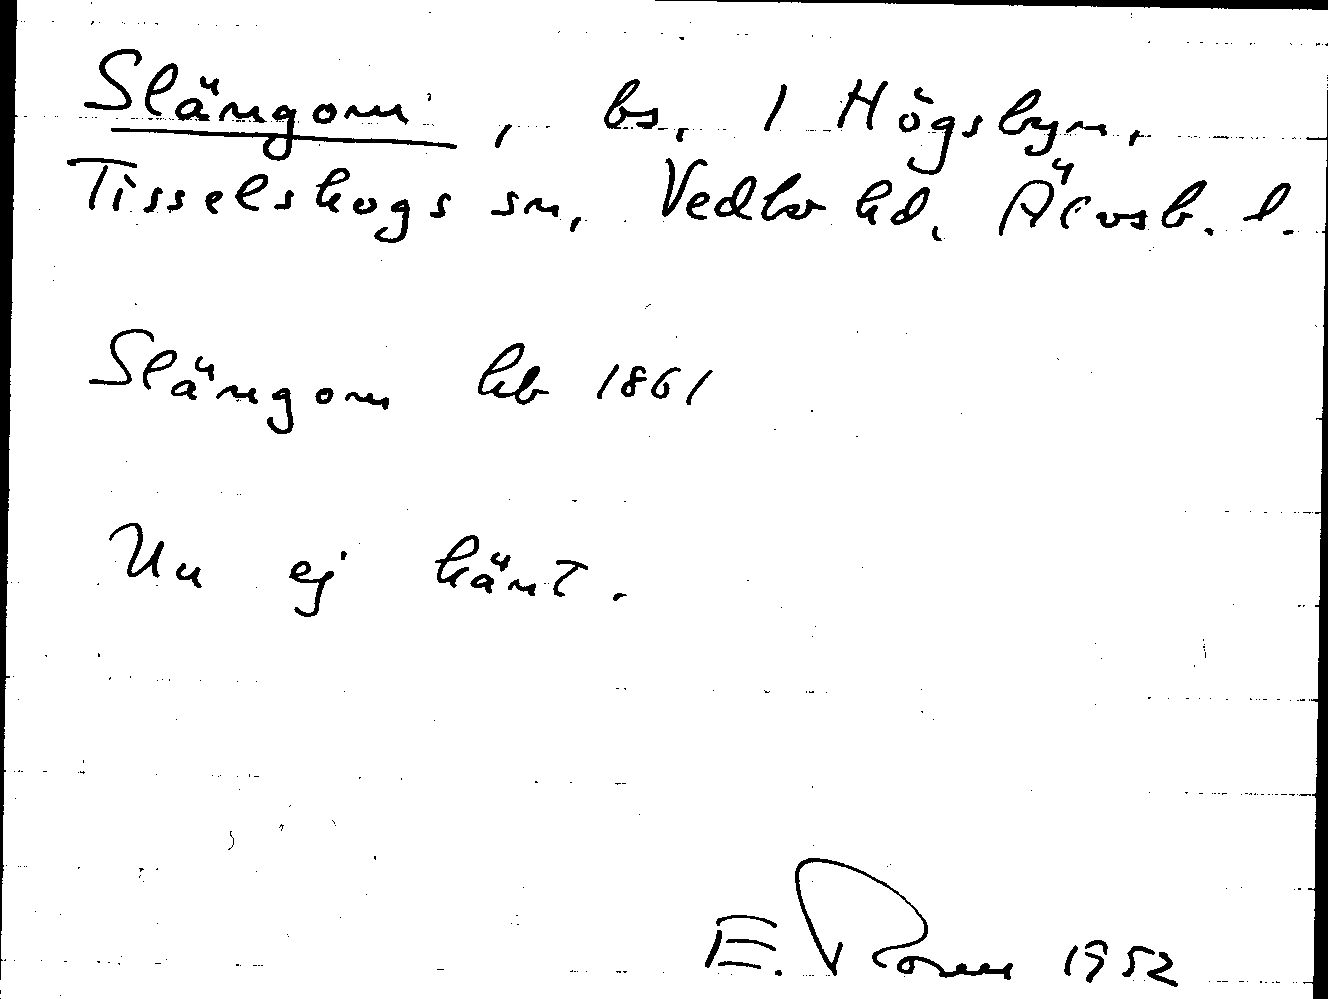 Slängom, bs, 1 Högsbyn,
Tisselskogs sn, Vedbo hd, Älvsb. l.
Slängom hb 1861
Nu ej känt.
E. Rosell 1952